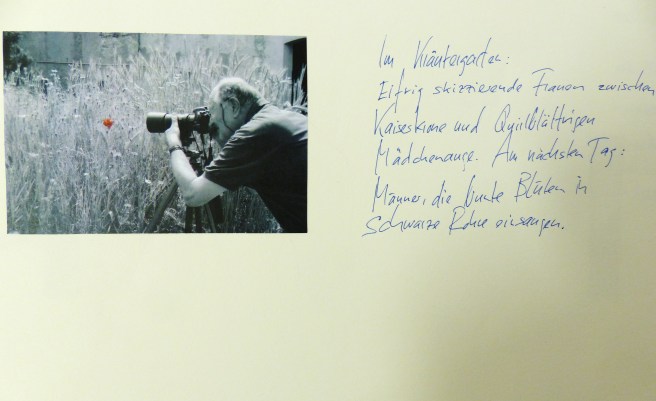 Im Kräutergarten:
Eifrig skizzierende Frauen zwischen
Kaiserkrone und Quirlblättrigen
Mädchenauge. Am nächsten Tag:
Männer, die bunte Blüten in
schwarze Rohre einsaugen.